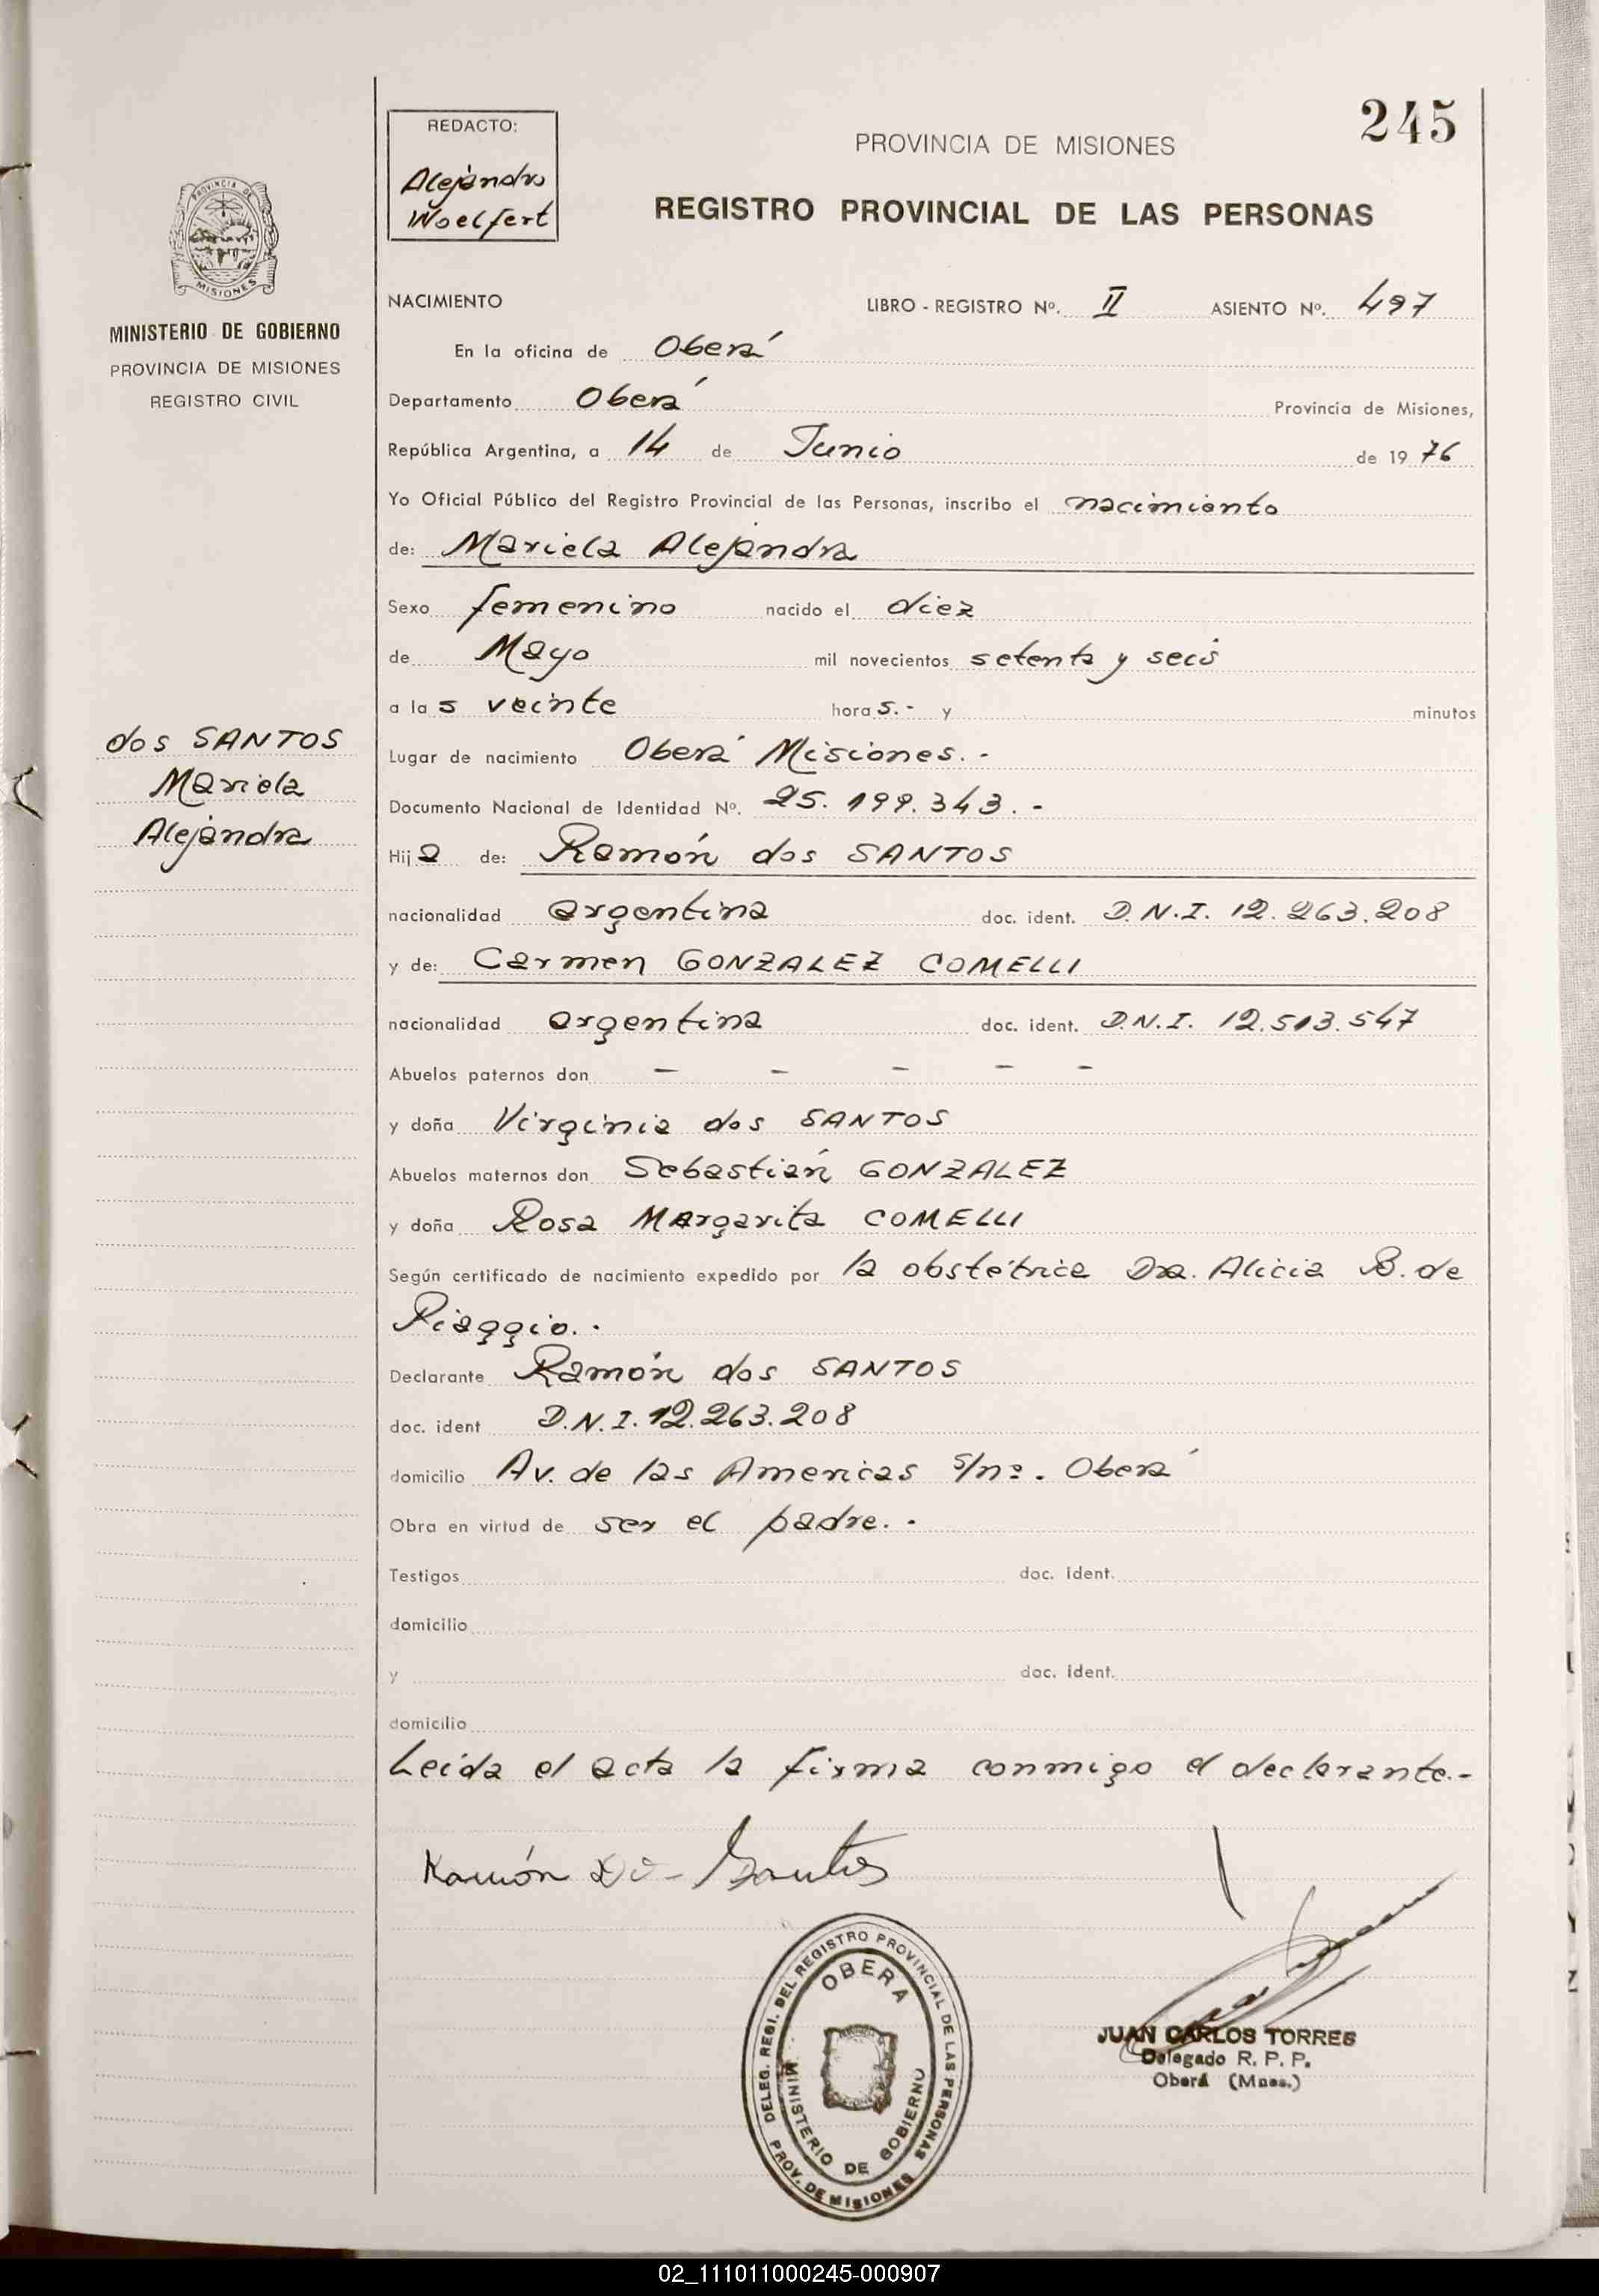 245
REDACTO:
Alejandro
Woelfert
PROVINCIA DE MISIONES
REGISTRO PROVINCIAL DE LAS PERSONAS
PROVINCIA DE
MISIONES
MINISTERIO DE GOBIERNO
PROVINCIA DE MISIONES
REGISTRO CIVIL
NACIMIENTO LIBRO - REGISTRO Nº. II ASIENTO Nº. 497
En la oficina de Oberá
Departamento Oberá Provincia de Misiones,
República Argentina, a 14 de Junio de 1976
Yo Oficial Público del Registro Provincial de las Personas, inscribo el nacimiento
de: Mariela Alejandra
Sexo femenino nacido el diez
de Mayo mil novecientos setenta y seis
a las veinte horas.- y minutos
dos SANTOS
Mariela
Alejandra
Lugar de nacimiento Oberá Misiones.-
Documento Nacional de Identidad Nº. 25.199.343.-
Hija de: Ramón dos SANTOS
nacionalidad argentina doc. ident. D.N.I. 12.263.208
y de: Carmen GONZALEZ COMELLI
nacionalidad argentina doc. ident. D.N.I. 12.513.547
Abuelos paternos don - - - - -
y doña Virginia dos SANTOS
Abuelos maternos don Sebastián GONZALEZ
y doña Rosa Margarita COMELLI
Según certificado de nacimiento expedido por la obstétrica Dra. Alicia B. de
Piaggio.-
Declarante Ramón dos SANTOS
doc. ident D.N.I. 12.263.208
domicilio Av. de las Americas s/nº. Oberá
Obra en virtud de ser el padre.-
Testigos doc. ident.
domicilio
y doc. ident.
domicilio
Leída el acta la firma conmigo el declarante.-
Ramón Do- Santos
DELEG. REGI. DEL REGISTRO PROVINCIAL DE LAS PERSONAS
OBERA
MINISTERIO DE GOBIERNO
PROV. DE MISIONES
JUAN CARLOS TORRES
Delegado R. P. P.
Oberá (Mnes.)
02_111011000245-000907